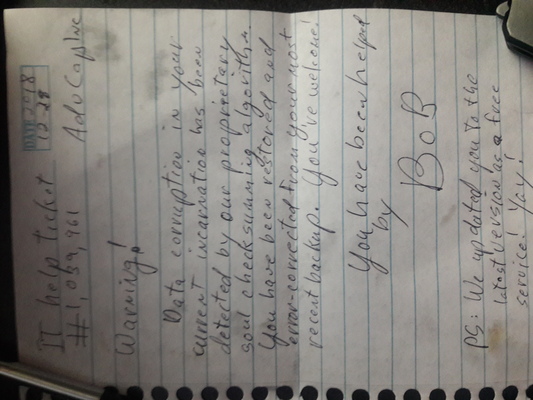 IT help ticket DATE 2018
#1,039,961 12-28
AdvCapInc
Warning!
Data corruption in your
current incarnation has been
detected by our proprietary
soul checksumming algorithm.
You have been restored and
error-corrected from your most
recent backup. You've welcome!
You have been helped
by
BoB
PS: We updated you to the
latest version as a free
service! Yay!